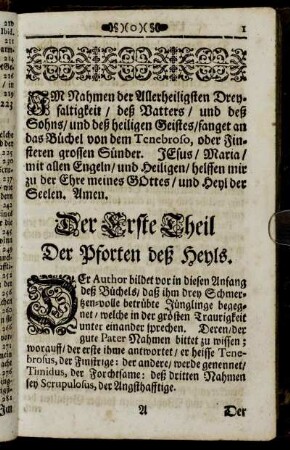 1
IM Nahmen der Allerheiligsten Drey-
faltigkeit / deß Vatters / und deß
Sohns / und deß heiligen Geistes / fanget an
das Büchel von dem Tenebroso, oder Fin-
steren grossen Sünder. JEsus / Maria /
mit allen Engeln / und Heiligen / helffen mir
zu der Ehre meines GOttes / und Heyl der
Seelen. Amen.
Der Erste Theil
Der Pforten deß Heyls.
DEr Author bildet vor in diesen Anfang
deß Büchels, daß ihm drey Schmer-
tzen-volle betrübte Jünglinge begeg-
net / welche in der grösten Traurigkeit
unter einander sprechen. Deren / der
gute Pater Nahmen bittet zu wissen;
worauff / der erste ihme antwortet / er heisse Tene-
brosus, der Finstrige: der andere / werde genennet /
Timidus, der Forchtsame: deß dritten Nahmen
sey Scrupulosus, der Angsthafftige.
A Der